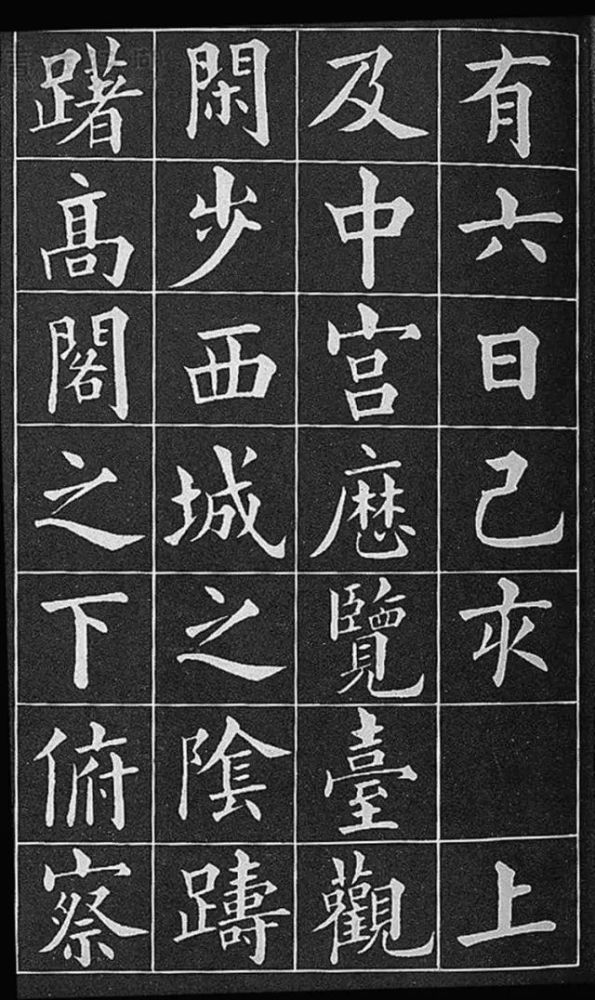 有六日己亥 上
及中宮歷覽臺觀
閑步西城之陰躊
躇髙閣之下俯察